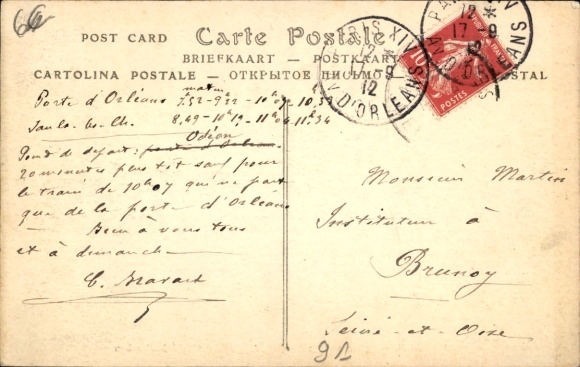 66
POST CARD Carte Postale
BRIEFKAART — POSTKAART
CARTOLINA POSTALE — ОТКРЫТОЕ ПИСЬМО
PARIS XIV
12 *
17 - 9
12
AV. D'ORLEANS
PARIS XIV
12 *
17 - 9
12
AV. D'ORLEANS
10
POSTES
matin
Porte d'Orléans 7.52 - 9.22 - 10h07 - 10,5
8,49 - 10h19 - 11h04 11h34
Odéon
Point de départ: porte d'Orléans
20 minutes plus tôt sauf pour
le train de 10h07 qui ne part
que de la porte d'Orléans
— Bien à vous tous
et à dimanche
Monsieur Martin
Instituteur à
Brunoy
Seine-et-Oise
91